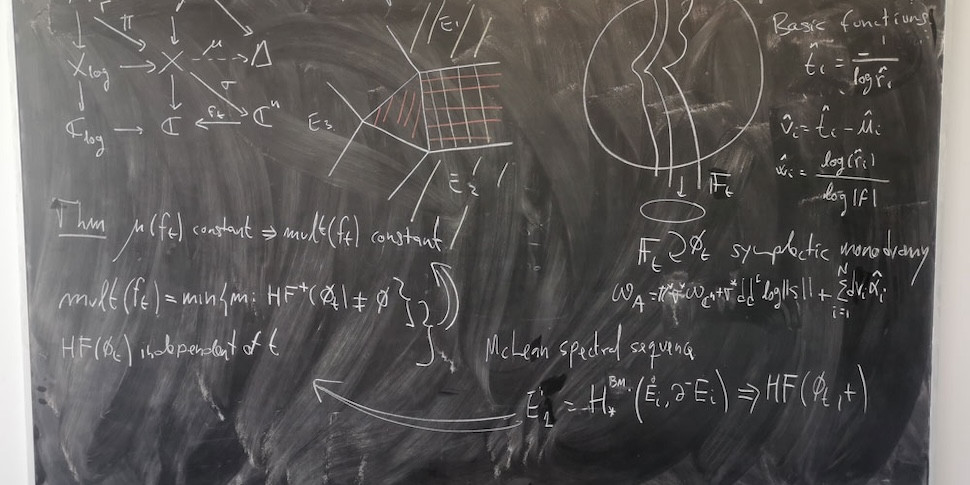 π
X_log → X μ ⇢ Δ
σ
ℂ_log → ℂ ← f_t ℂⁿ
E₁
E₃
E₂
𝔽_t
Basic functions:
t̂_i = -1 / log r̂_i
v̂_i = t̂_i - û_i
log(r̂_i) / log|f|
Thm μ(f_t) constant ⇒ mult(f_t) constant
mult(f_t) = min{m: HF⁺(ϕ_t) ≠ ∅}
HF(ϕ_t) independent of t
𝔽_t ⊋ ϕ_t symplectic monodromy
McLean spectral sequence
E'₂ = H_*^{BM.}(E̊_i, ∂⁻E_i) ⇒ HF(ϕ_t, +)